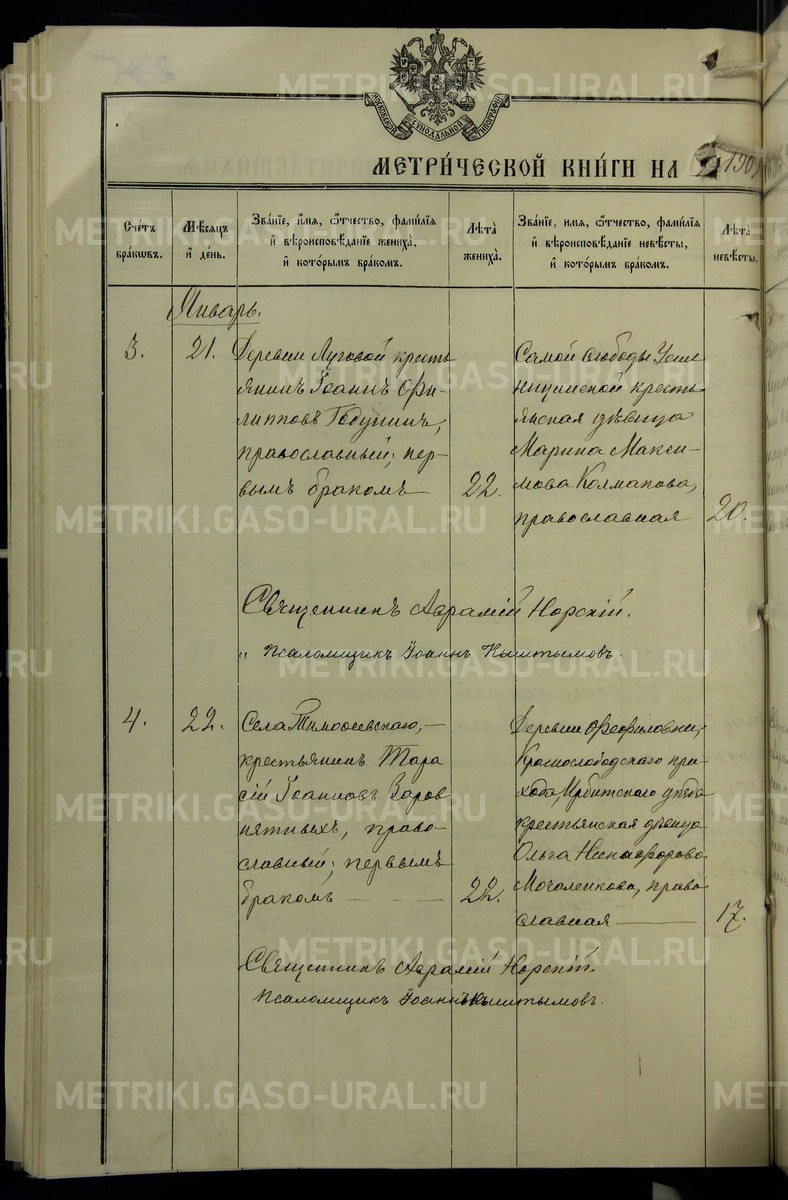 МОСКОВСКОЙ СѴНОДАЛЬНОЙ ТИПОГРАФІИ
МЕТРИ́ЧЕСКОЙ КНИ́ГИ НА 190
Сче́тъ бра́кωвъ.
Мѣ́сяцъ и҆ де́нь.
Зва́нїе, и҆́мя, ѻ҆́тчество, фами́лїя и҆ вѣроисповѣ́данїе жениха̀, и҆ кото́рымъ бра́комъ.
Лѣта̀ жениха̀.
Зва́нїе, и҆мя, ѻ҆́тчество, фами́лїя и҆ вѣроисповѣ́данїе невѣ́сты, и҆ кото́рымъ бра́комъ.
Лѣта̀ невѣ́сты.
Январь.
3.
21.
Деревни Луговой кресть
янинъ Іоаннъ Фи-
липповъ Годунинъ,
православный; пер-
вымъ бракомъ
22.
Самой слободы Усть-
ницинской кресть
янская дѣвица
Марина Макси-
мова Колмакова,
православная
20.
Священникъ Аврамій Норскій.
" Псаломщикъ Іоаннъ Кыштымовъ.
4.
22.
Села Тимофеевскаго,
крестьянинъ Тара
сій Іоанновъ Заров
нятныхъ, право-
славный; первымъ
бракомъ
22.
Деревни Феофиловки,
Краснослободскаго при-
хода, Ирбитскаго уѣзда
крестьянская дѣвица
Ольга Никифорова
Мочаленкова, право
славная
17.
Священникъ Аврамій Норскій.
Псаломщикъ Іоаннъ Кыштымовъ.
METRIKI.GASO-URAL.RU